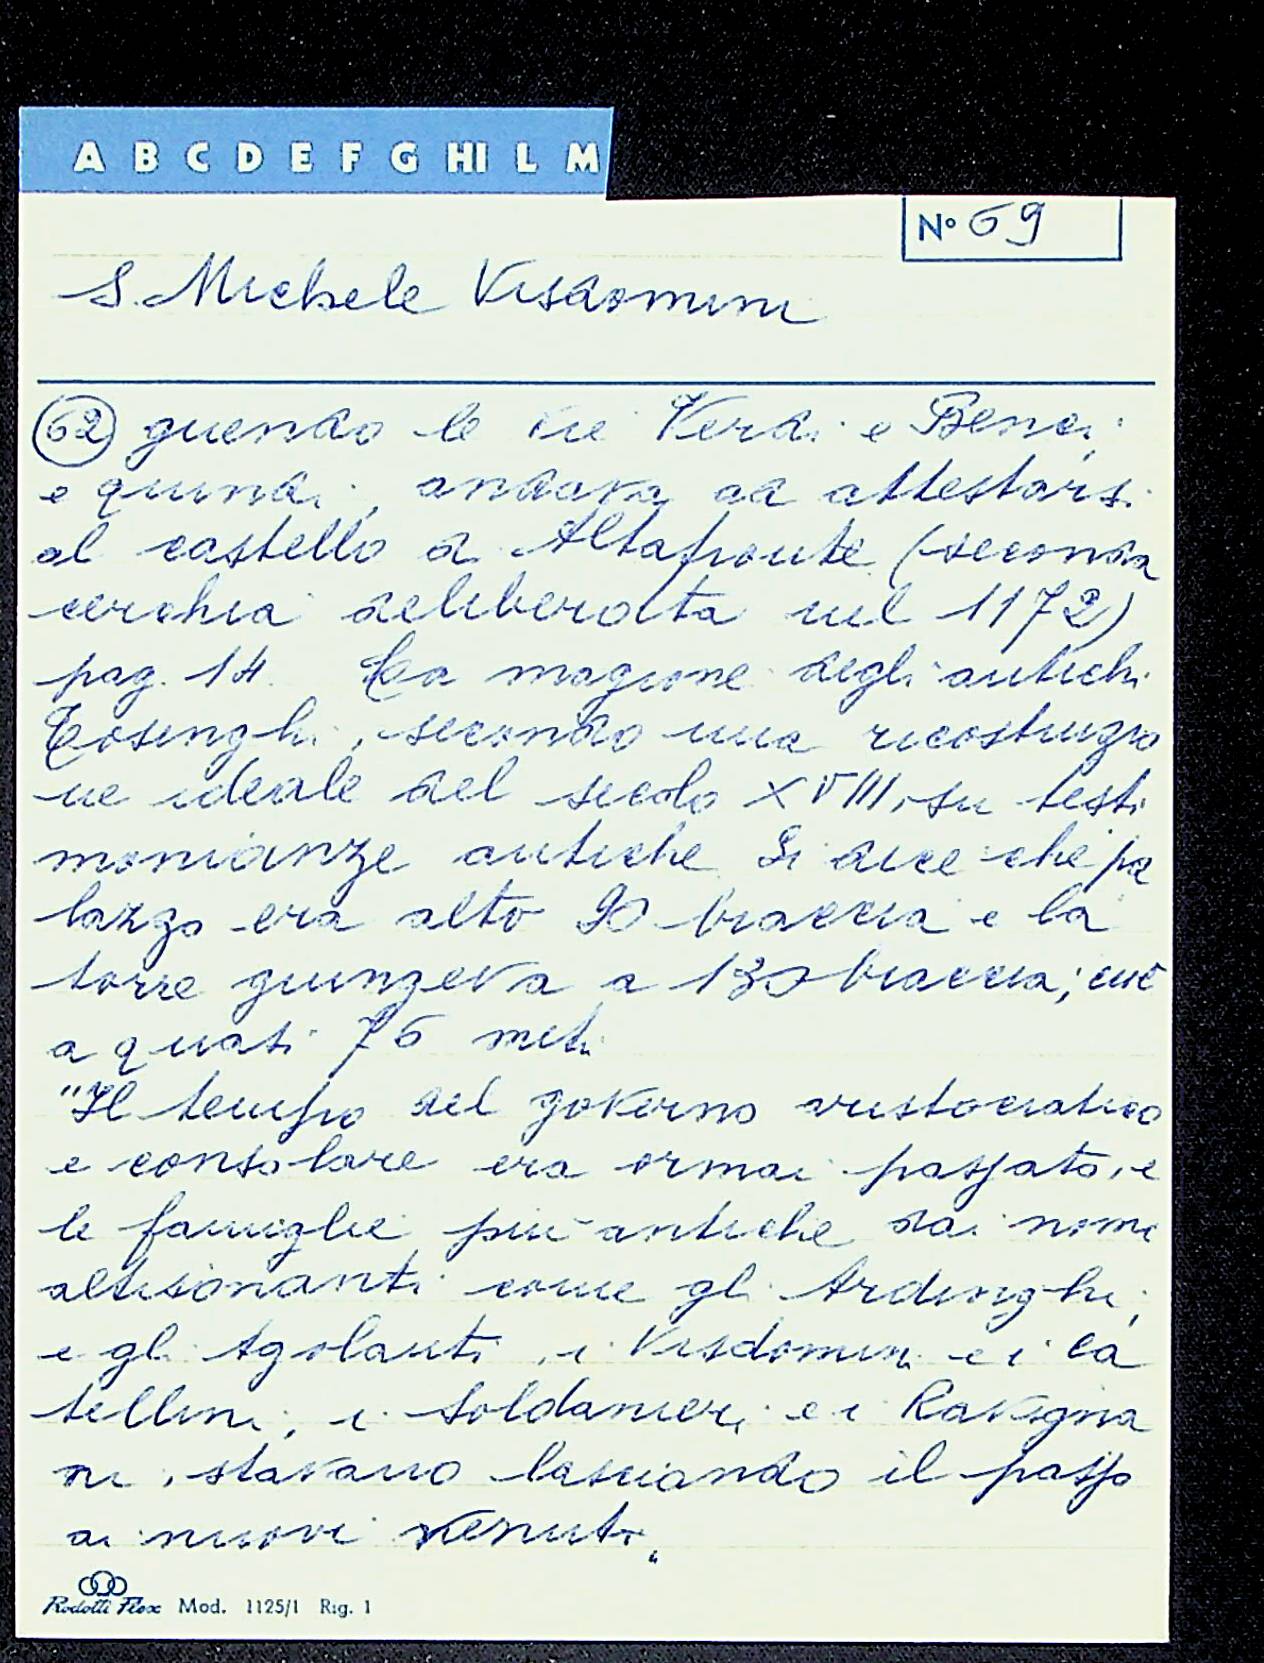 A B C D E F G HI L M
N° 69
S. Michele Visdomini
62 guendo le vie Verdi e Benci,
e quindi, andava ad attestarsi
al castello di Altafronte (seconda
cerchia deliberata nel 1172)
pag. 14. La magione degli antichi
Tosinghi, secondo una ricostruzio
ne ideale del secolo XVIII, su testi
monianze antiche. Si dice che pa
lazzo era alto 90 braccia e la
torre giungeva a 130 braccia; cioè
a quasi 76 metri
"Il tempo del governo aristocratico
e consolare era ormai passato, e
le famiglie più antiche dai nomi
altisonanti come gli Ardinghi,
e gli Agolanti, i Visdomini e i Ca
tellini, i Soldanieri e i Ravigna
ni, stavano lasciando il passo
ai nuovi venuti„
Rodotti Flex Mod. 1125/1 Rig. 1